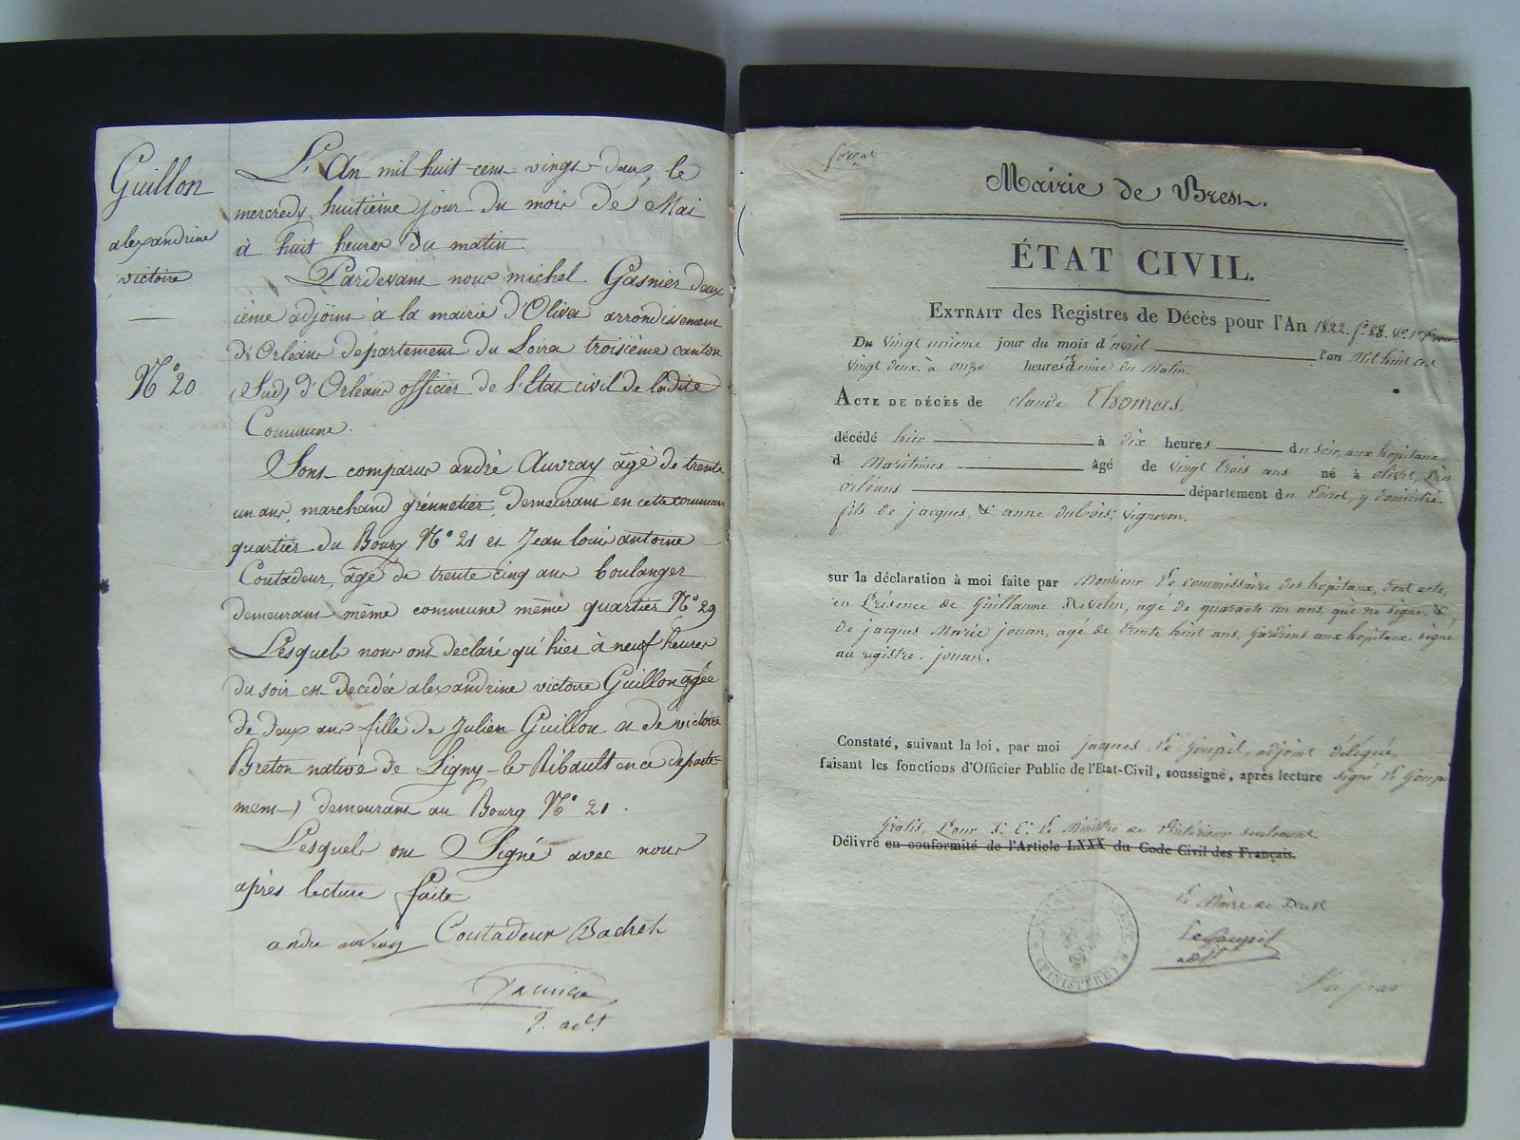 Guillon
alexandrine
victoire
N° 20
L'An mil huit cent vingt deux, le
mercredy huitième jour du mois de Mai
à huit heures du matin
Pardevant nous michel Gasnier deux
ième adjoint à la mairie d'Olivet arrondissement
d'Orléans departement du Loiret troisième canton
(Sud) d'Orléans officier de l'Etat civil de ladite
Commune.
Sont comparus andré Auvray âgé de trente
un ans, marchand grénnetier, demeurant en cette commune
quartier du Bourg N° 21 et Jean louis antoine
Coutadeur, âgé de trente cinq ans boulanger
demeurant même commune même quartier N° 29
Lesquels nous ont declaré qu'hier à neuf heures
du soir est decedée alexandrine victoire Guillon agée
de deux ans fille de Julien Guillon et de victoire
Breton native de Ligny-le Ribault en ce departe-
ment) demeurant au Bourg N° 21.
Lesquels ont Signé avec nous
après lecture faite
andre auvray Coutadeur Bachet
Mairie de Brest.
ÉTAT CIVIL.
EXTRAIT des Registres de Décès pour l'An 1822. f° 88. V°
Du vingt unième jour du mois d'avril l'an Mil huit cent
vingt deux à onze heures du Matin.
ACTE DE DÉCÈS de claude Thomas.
décédé hier à dix heures du soir, aux hopitaux
d Maritimes âgé de vingt trois ans né à olivet,
orléans département du Loiret, y domicilié
fils de jacques, & anne dubois, vigneron.
sur la déclaration à moi faite par Monsieur Le commissaire des hopitaux, dont acte,
en Présence de Guillaume Revelen, agé de quarante un ans, qui ne signe, &
De jacques Marie jouan, agé de trente huit ans, gardiens aux hopitaux signe
au registre. jouan.
Constaté, suivant la loi, par moi jacques Le Goupil, adjoint délégué,
faisant les fonctions d'Officier Public de l'Etat-Civil, soussigné, après lecture signé Le Goupil
Gratis, Pour S. E. Le Ministre de l'intérieur seulement
Délivré en conformité de l'Article LXXX du Code Civil des Français.
Le Maire de Brest
Le Goupil
adjt
(FINISTÈRE)